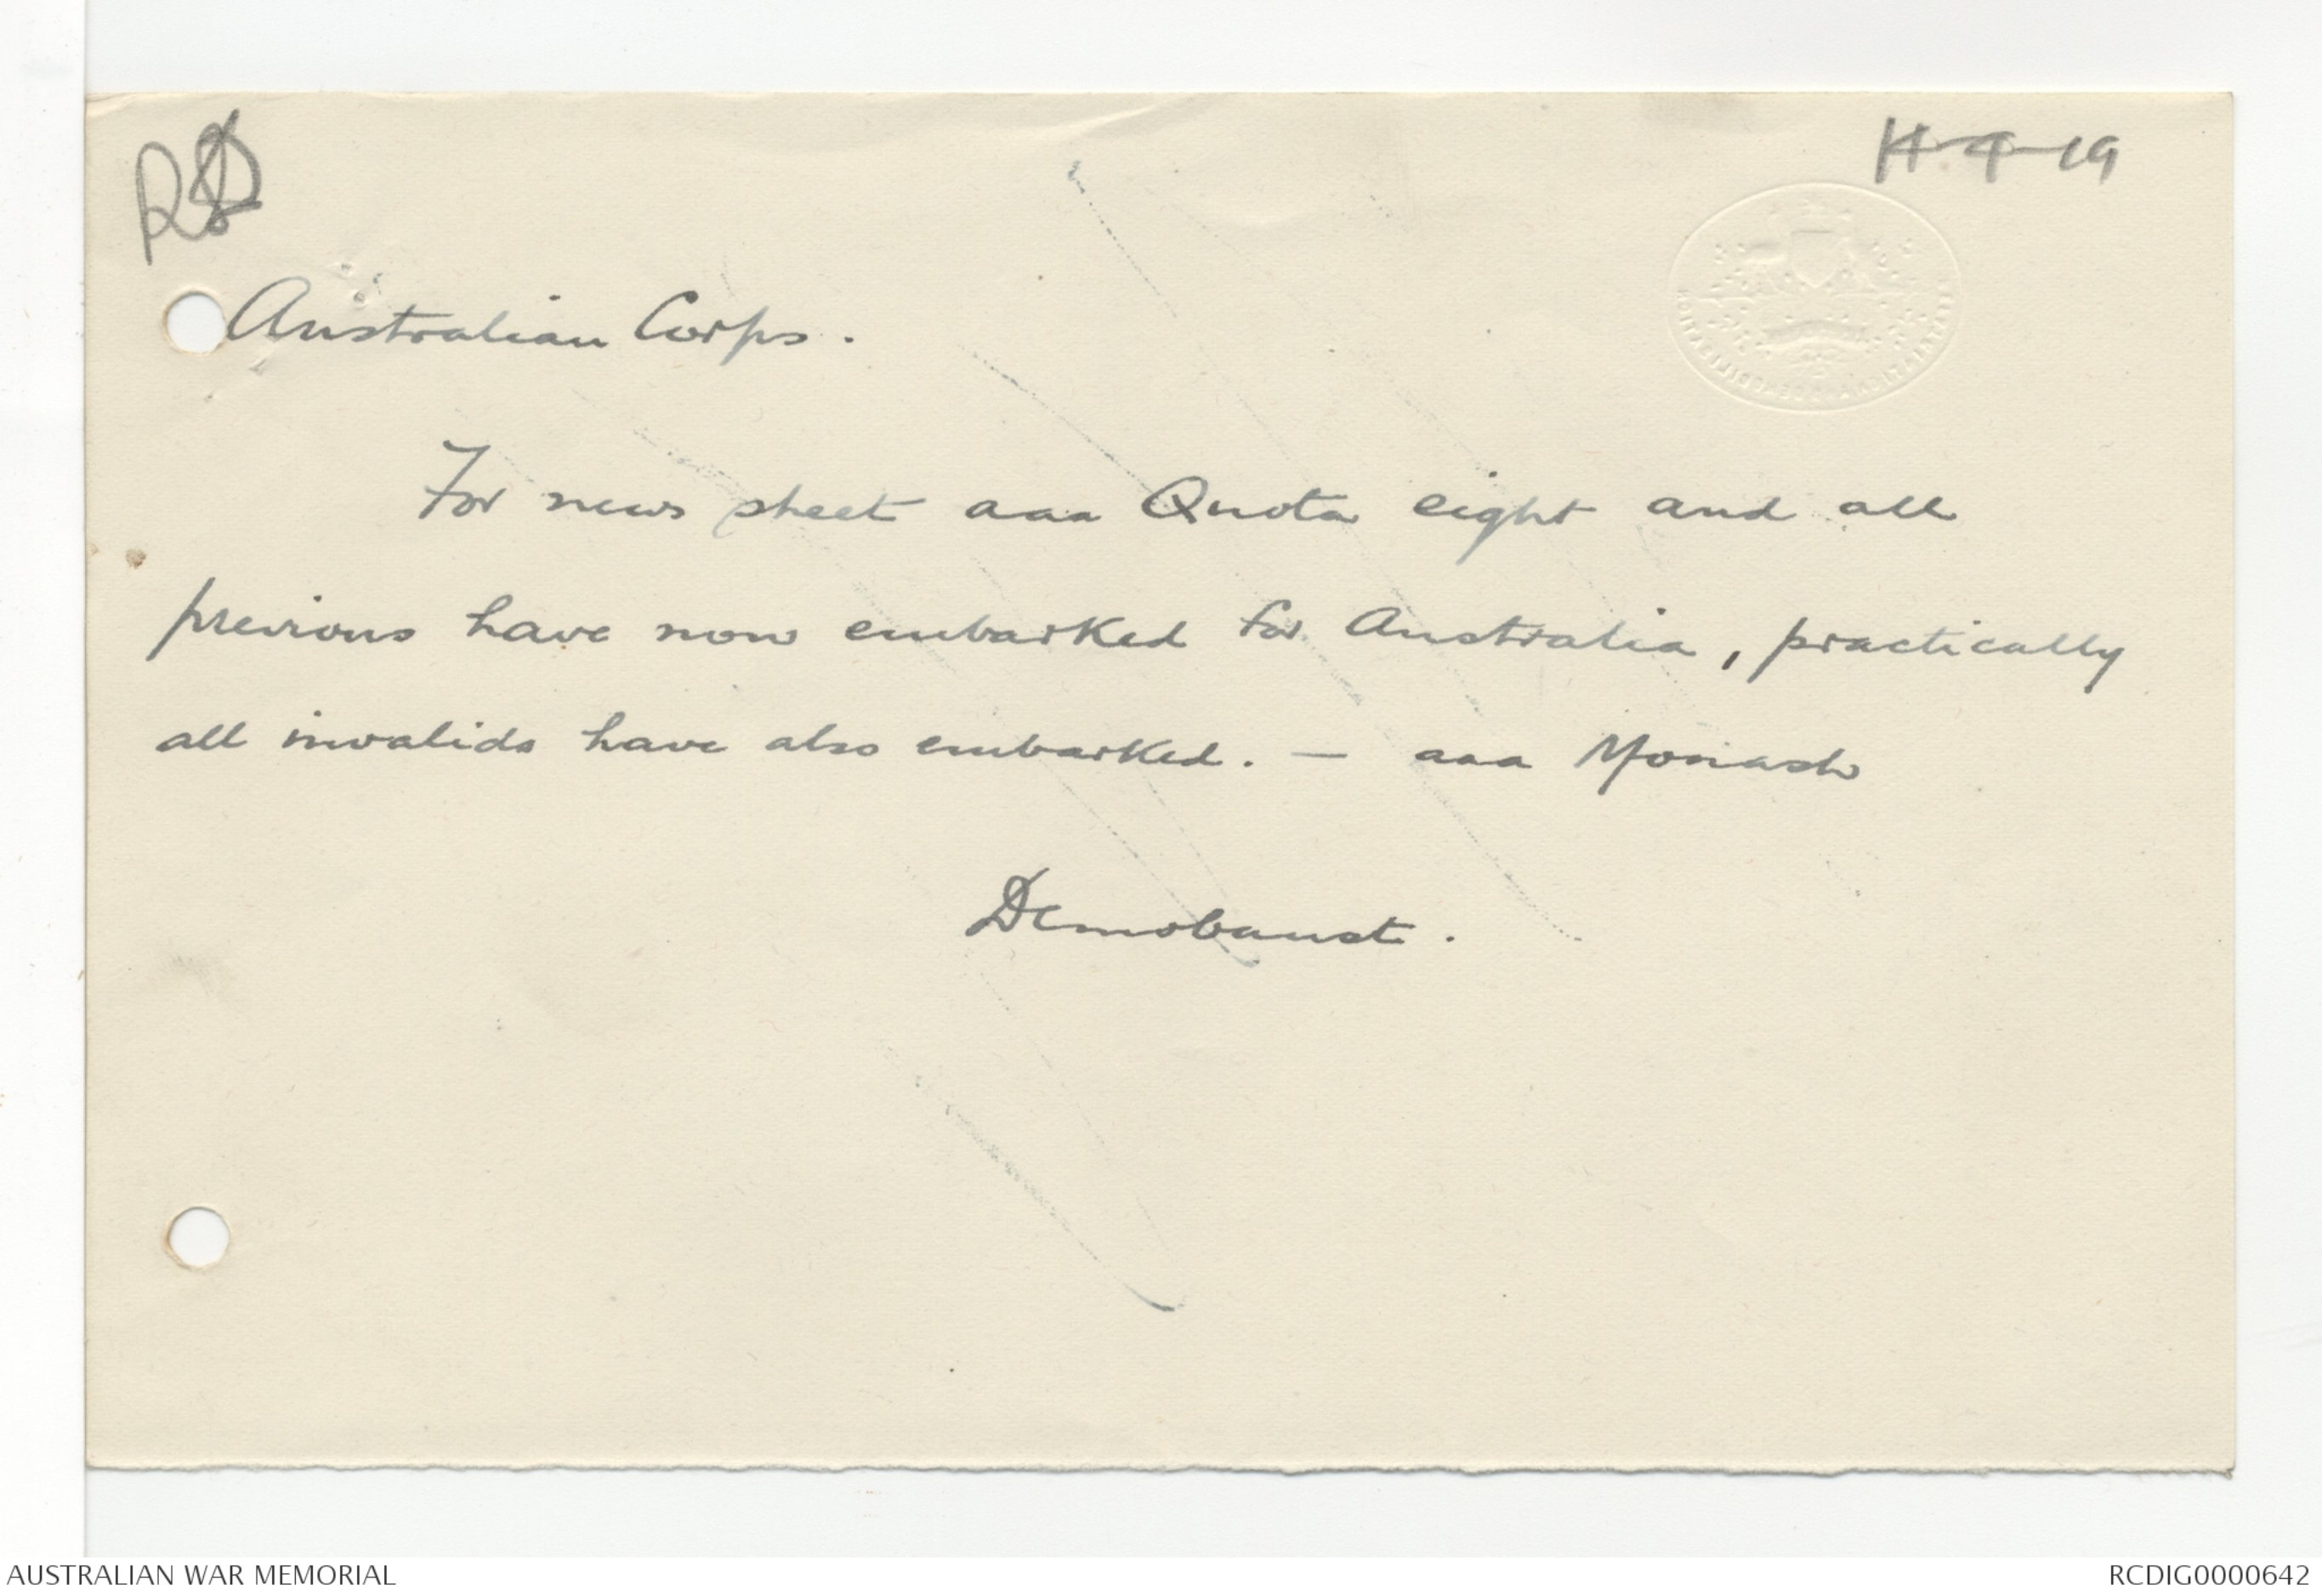 11-4-19
Australian Corps.
For news sheet aaa Quota eight and all
previous have now embarked for Australia, practically
all invalids have also embarked. — aaa Monash
Demobaust.
AUSTRALIAN WAR MEMORIAL
RCDIG0000642